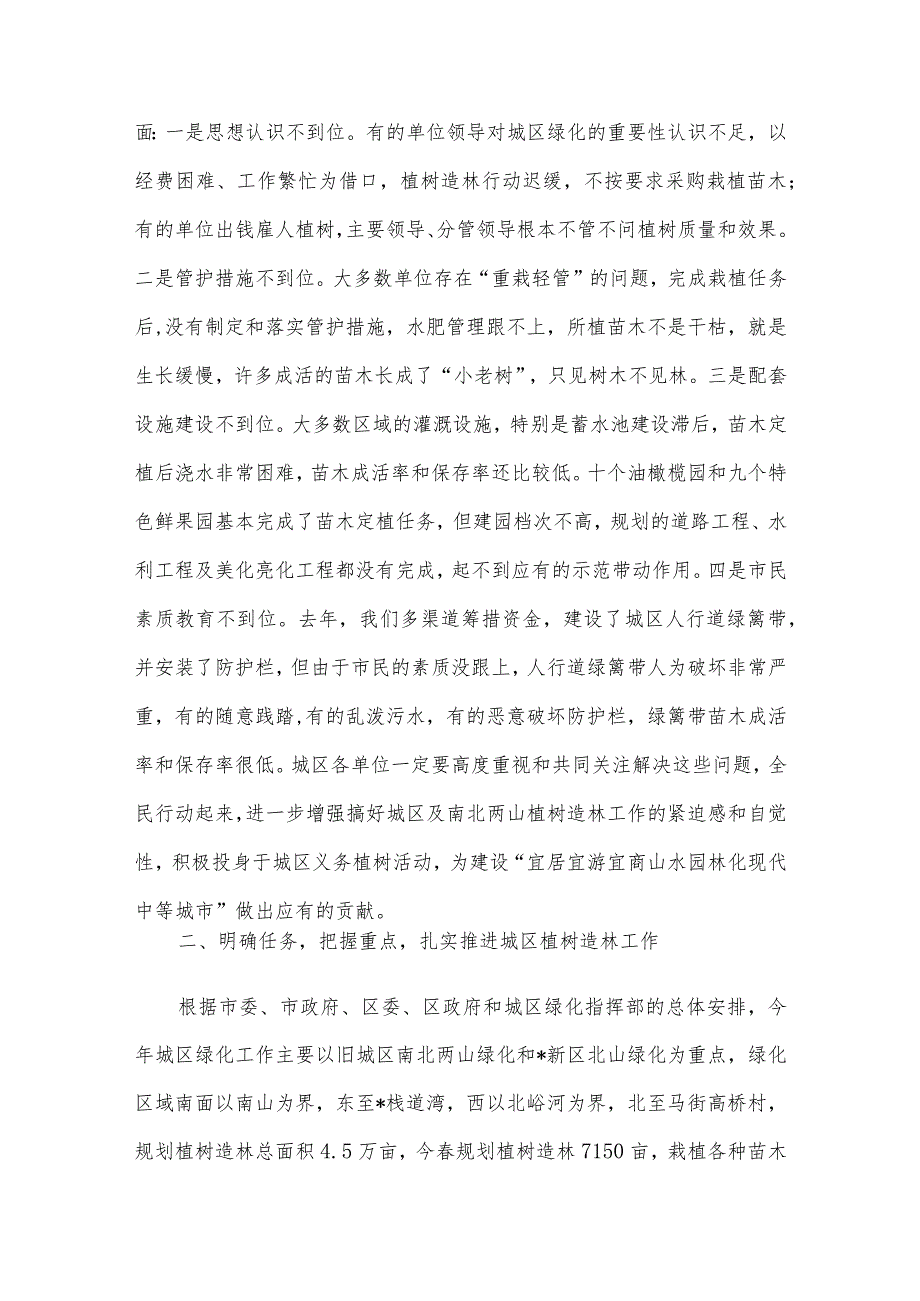 面：一是思想认识不到位。有的单位领导对城区绿化的重要性认识不足，以
经费困难、工作繁忙为借口，植树造林行动迟缓，不按要求采购栽植苗木；
有的单位出钱雇人植树，主要领导、分管领导根本不管不问植树质量和效果。
二是管护措施不到位。大多数单位存在“重栽轻管”的问题，完成栽植任务
后,没有制定和落实管护措施，水肥管理跟不上，所植苗木不是干枯，就是
生长缓慢，许多成活的苗木长成了“小老树”，只见树木不见林。三是配套
设施建设不到位。大多数区域的灌溉设施，特别是蓄水池建设滞后，苗木定
植后浇水非常困难，苗木成活率和保存率还比较低。十个油橄榄园和九个特
色鲜果园基本完成了苗木定植任务，但建园档次不高，规划的道路工程、水
利工程及美化亮化工程都没有完成，起不到应有的示范带动作用。四是市民
素质教育不到位。去年，我们多渠道筹措资金，建设了城区人行道绿篱带，
并安装了防护栏，但由于市民的素质没跟上，人行道绿篱带人为破坏非常严
重，有的随意践踏,有的乱泼污水，有的恶意破坏防护栏，绿篱带苗木成活
率和保存率很低。城区各单位一定要高度重视和共同关注解决这些问题，全
民行动起来，进一步增强搞好城区及南北两山植树造林工作的紧迫感和自觉
性，积极投身于城区义务植树活动，为建设“宜居宜游宜商山水园林化现代
中等城市”做出应有的贡献。
二、明确任务，把握重点，扎实推进城区植树造林工作
根据市委、市政府、区委、区政府和城区绿化指挥部的总体安排，今
年城区绿化工作主要以旧城区南北两山绿化和*新区北山绿化为重点，绿化
区域南面以南山为界，东至*栈道湾，西以北峪河为界，北至马街高桥村，
规划植树造林总面积 4.5 万亩，今春规划植树造林 7150 亩，栽植各种苗木